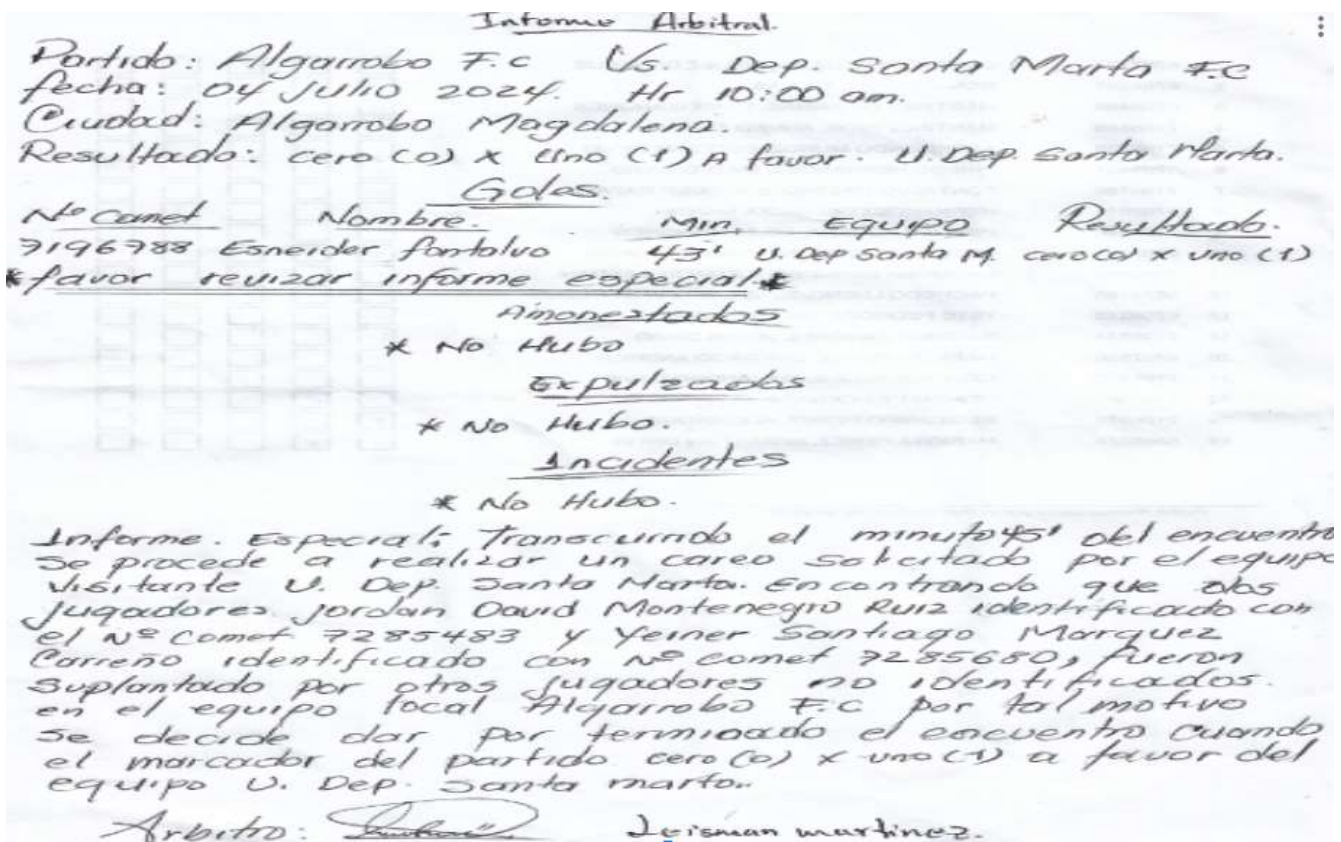 Informe Arbitral.
Partido: Algarrobo F.c Vs. Dep. Santa Marta F.C
fecha: 04 Julio 2024. Hr 10:00 am.
Ciudad: Algarrobo Magdalena.
Resultado: cero (0) x Uno (1) A favor. U. Dep. Santa Marta.
Goles.
Nº Comet Nombre. Min. Equipo Resultado.
7196788 Esneider fontalvo 43' U. Dep Santa M. cero (0) x uno (1)
*favor revizar informe especial*
Amonestados
* No Hubo
Expulzados
* No Hubo.
Incidentes
* No Hubo.
Informe. Especial; Transcurrido el minuto 45' del encuentro
se procede a realizar un careo solicitado por el equipo
visitante U. Dep. Santa Marta. Encontrando que dos
Jugadores. Jordan David Montenegro Ruiz identificado con
el Nº Comet 7285483 y Yeiner Santiago Marquez
Carreño identificado con Nº comet 7285680, fueron
suplantado por otros Jugadores no identificados.
en el equipo local Algarrobo F.C por tal motivo
se decide dar por terminado el encuentro cuando
el marcador del partido cero (0) x uno (1) a favor del
equipo U. Dep. Santa marta.
Arbitro: Leisman martinez.